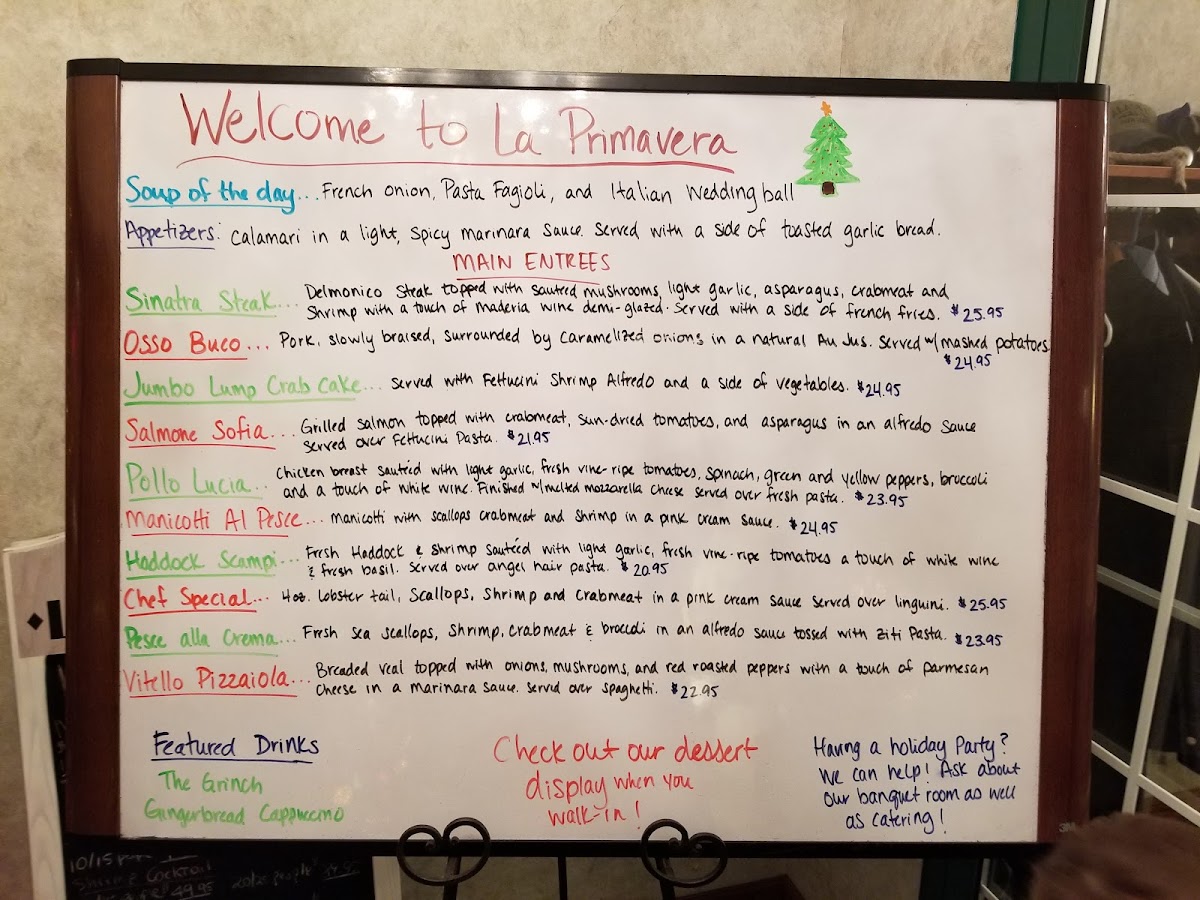 Welcome to La Primavera
Soup of the day... French onion, Pasta Fagioli, and Italian Wedding ball
Appetizers: Calamari in a light, spicy marinara sauce. Served with a side of toasted garlic bread.
MAIN ENTREES
Sinatra Steak... Delmonico Steak topped with sauteed mushrooms, light garlic, asparagus, crabmeat and
Shrimp with a touch of maderia wine demi-glazed. Served with a side of french fries. $25.95
Osso Buco... Pork, slowly braised, surrounded by caramelized onions in a natural Au Jus. Served w/ mashed potatoes
$24.95
Jumbo Lump Crab Cake... Served with Fettucini Shrimp Alfredo and a side of vegetables. $24.95
Salmone Sofia... Grilled salmon topped with crabmeat, sun-dried tomatoes, and asparagus in an alfredo sauce
served over Fettucini Pasta. $21.95
Pollo Lucia... Chicken breast sautéed with light garlic, fresh vine-ripe tomatoes, spinach, green and yellow peppers, broccoli
and a touch of white wine. Finished w/ melted mozzarella cheese served over fresh pasta. $23.95
Manicotti Al Pesce... manicotti with scallops crabmeat and shrimp in a pink cream sauce. $24.95
Haddock Scampi... Fresh Haddock & shrimp sautéed with light garlic, fresh vine-ripe tomatoes a touch of white wine
& fresh basil. Served over angel hair pasta. $20.95
Chef Special... 4oz. lobster tail, Scallops, Shrimp and Crabmeat in a pink cream sauce served over linguini. $25.95
Pesce alla Crema... Fresh sea scallops, shrimp, crabmeat & broccoli in an alfredo sauce tossed with Ziti Pasta. $23.95
Vitello Pizzaiola... Breaded veal topped with onions, mushrooms, and red roasted peppers with a touch of parmesan
cheese in a marinara sauce. Served over spaghetti. $22.95
Featured Drinks
The Grinch
Gingerbread Cappuccino
Check out our dessert
display when you
walk-in!
Having a holiday Party?
We can help! Ask about
our banquet room as well
as catering!
3M
10/15
Shrimp Cocktail
49.95